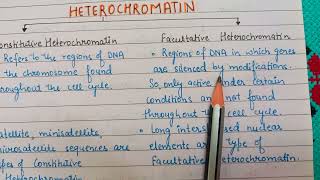 HETEROCHROMATIN
Constitutive Heterochromatin
Refers to the regions of DNA
the chromosome found
throughout the cell cycle.
satellite, minisatellite,
microsatellite sequences are
types of Constitutive
Heterochromatin
Facultative Heterochromatin
• Regions of DNA in which genes
are silenced by modifications.
So, only active under certain
conditions and not found
throughout the cell cycle.
• Long interspersed nuclear
elements are type of
Facultative Heterochromatin.